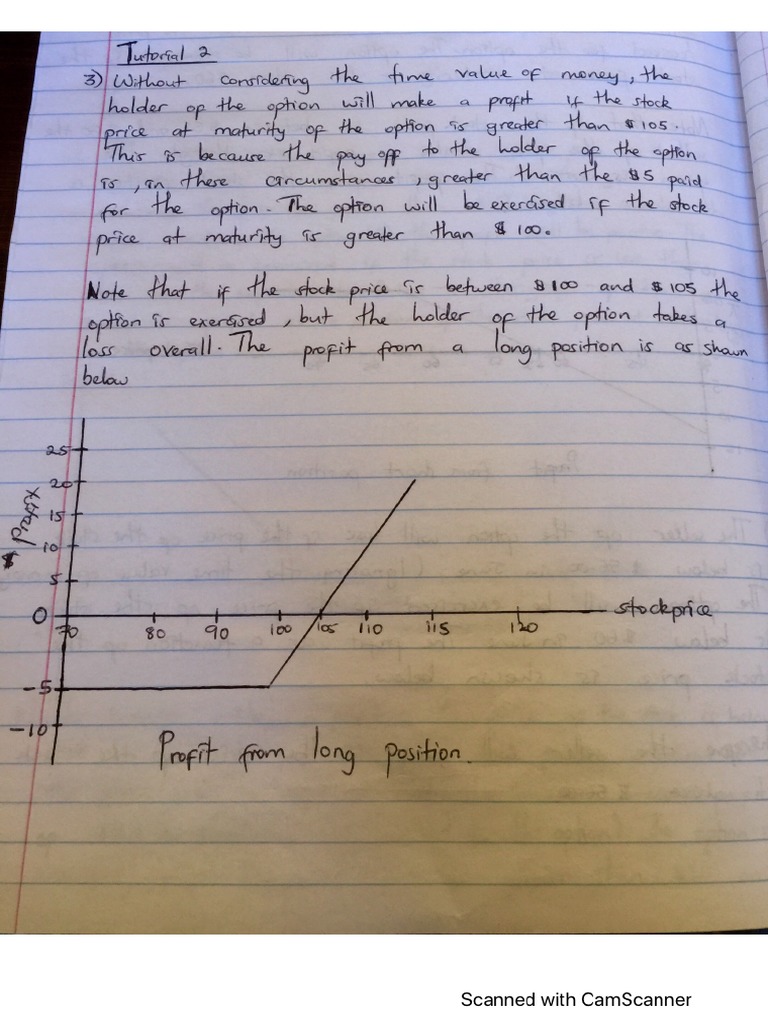 Tutorial 2
3) Without considering the time value of money, the
holder of the option will make a profit if the stock
price at maturity of the option is greater than $105.
This is because the pay off to the holder of the option
is, in these circumstances, greater than the $5 paid
for the option. The option will be exercised if the stock
price at maturity is greater than $100.
Note that if the stock price is between $100 and $105 the
option is exercised, but the holder of the option takes a
loss overall. The profit from a long position is as shown
below
25
20
15
10
5
0
-5
-10
$ Profit
70 80 90 100 105 110 115 120
stock price
Profit from long position.
Scanned with CamScanner